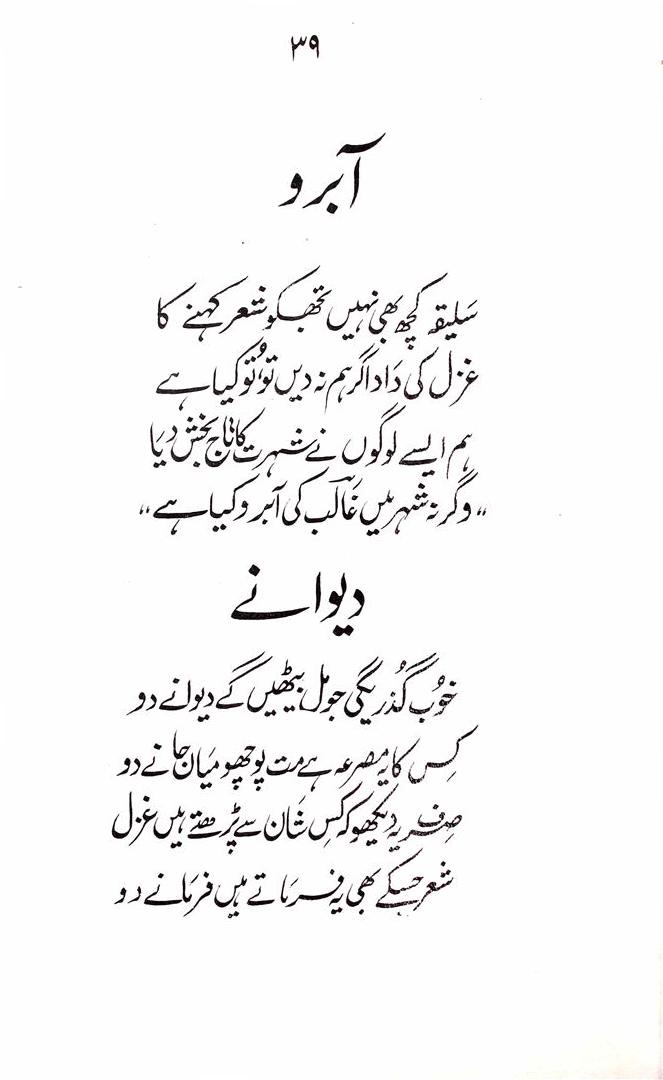 ۳۹
آبرو
سَلیقہ کچھ بھی نہیں تجھکو شعر کہنے کا
غزل کی دَاد اگر ہم نہ دیں تو تُو کیا ہے
ہم ایسے لوگوں نے شہرت کا تاج بخش دیَا
”وگرنہ شہر میں غَالَب کی آبرو کیا ہے“
دیوانے
خوُب گُذریگی جو مل بیٹھیں گے دیوانے دو
کِس کا یہ مصرعہ ہے مت پوچھو میَاں جانے دو
صِرف یہ دیکھو کہ کسِ شَان سے پڑھتے ہیں غزل
شعر جسکے بھی یہ فرمَاتے ہیں فرمَانے دو